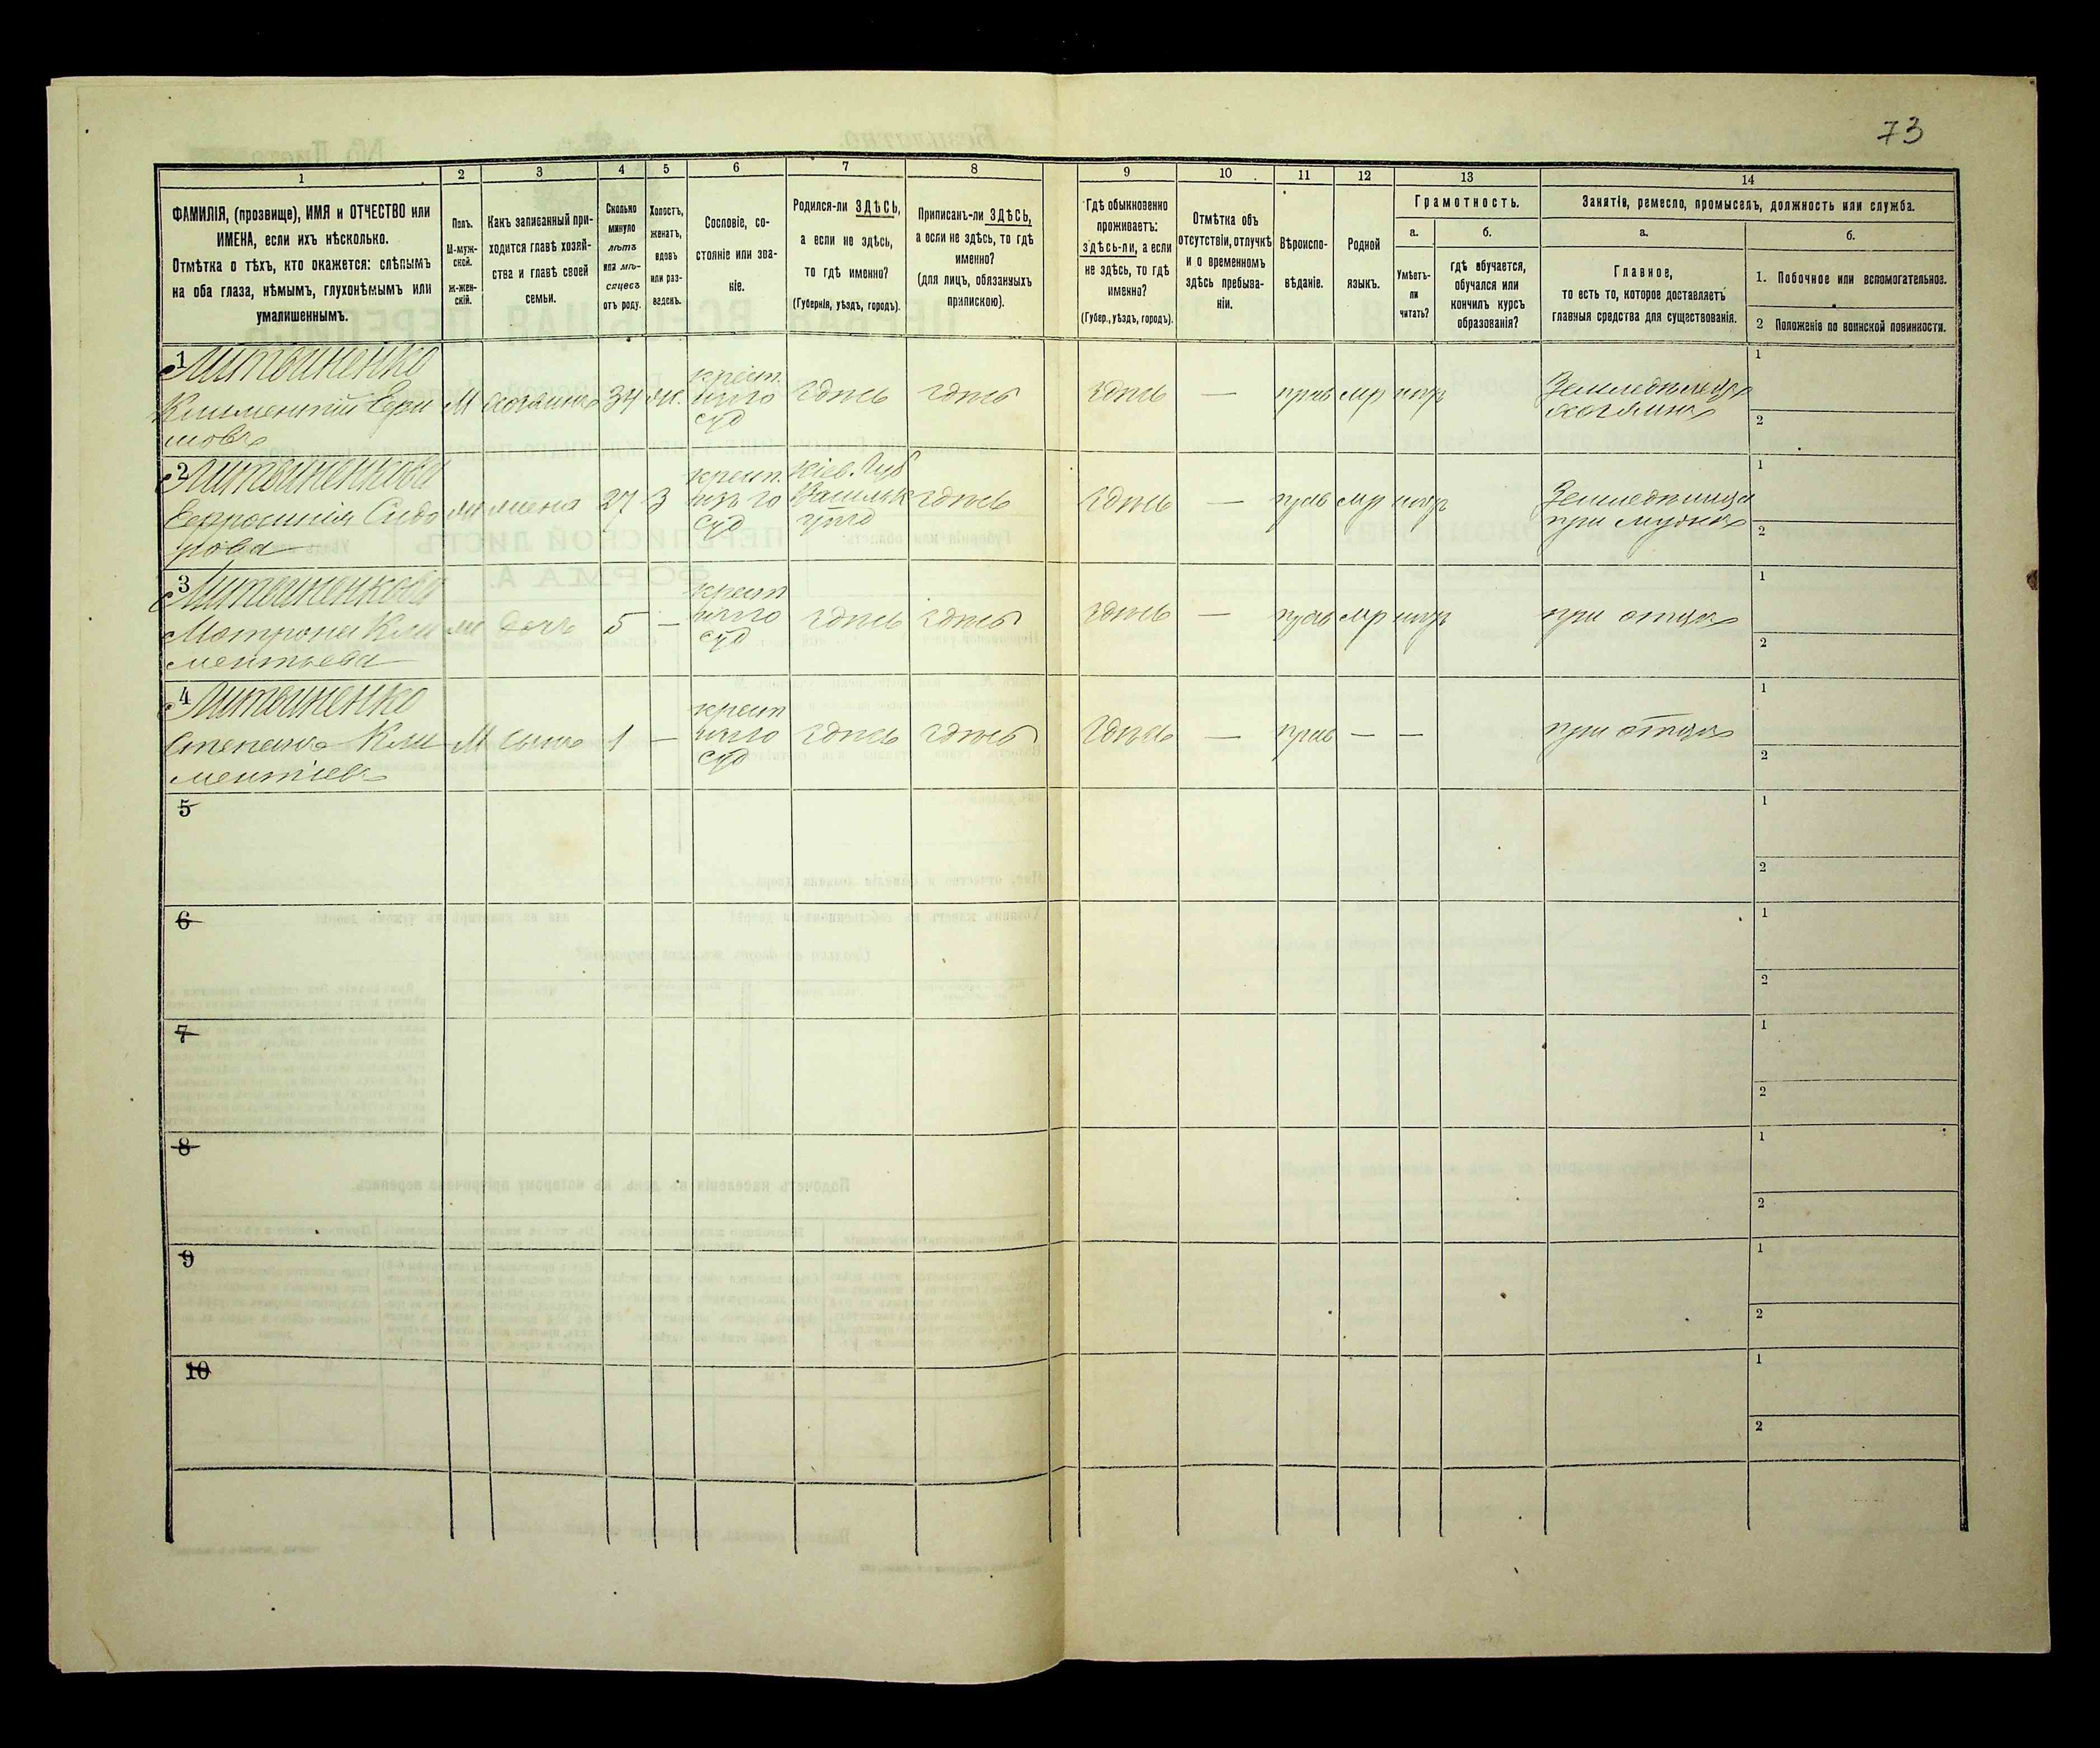 73
1
2
3
4
5
6
7
8
9
10
11
12
13
14
ФАМИЛІЯ, (прозвище), ИМЯ и ОТЧЕСТВО или
ИМЕНА, если ихъ нѣсколько.
Отмѣтка о тѣхъ, кто окажется: слѣпымъ
на оба глаза, нѣмымъ, глухонѣмымъ или
умалишеннымъ.
Полъ.
М-муж-
ской.
Ж-жен-
скій.
Какъ записанный при-
ходится главѣ хозяй-
ства и главѣ своей
семьи.
Сколько
минуло
лѣтъ
или мѣ-
сяцевъ
отъ роду.
Холостъ,
женатъ,
вдовъ
или раз-
веденъ.
Сословіе, со-
стояніе или зва-
ніе.
Родился-ли ЗДѢСЬ,
а если не здѣсь,
то гдѣ именно?
(Губернія, уѣздъ, городъ).
Приписанъ-ли ЗДѢСЬ,
а если не здѣсь, то гдѣ
именно?
(для лицъ, обязанныхъ
припискою).
Гдѣ обыкновенно
проживаетъ:
здѣсь-ли, а если
не здѣсь, то гдѣ
именно?
(Губер., уѣздъ, городъ).
Отмѣтка объ
отсутствіи, отлучкѣ
и о временномъ
здѣсь пребыва-
ніи.
Вѣроиспо-
вѣданіе.
Родной
языкъ.
Грамотность.
а.
Умѣетъ-
ли
читать?
б.
гдѣ обучается,
обучался или
кончилъ курсъ
образованія?
Занятіе, ремесло, промыселъ, должность или служба.
а.
Главное,
то есть то, которое доставляетъ
главныя средства для существованія.
б.
1. Побочное или вспомогательное.
2 Положеніе по воинской повинности.
1 Литвиненко
Климентій Ефи
мовъ
М
хозяинъ
34
ж.
крест.
суд
здѣсь
здѣсь
здѣсь
—
прав
мр
нгр
Земледѣлецъ
хозяинъ
1
2
2 Литвиненкова
Сидо
рова
жена
27
З
крест.
суд
Кіев. Губ
здѣсь
здѣсь
—
прав
мр
нгр
при мужѣ
1
2
3 Литвиненкова
Матрона Кли
ментьева
дочь
5
—
крест
суд
здѣсь
здѣсь
здѣсь
—
прав
мр
нгр
при отцѣ
1
2
4 Литвиненко
Степанъ Кли
ментіевъ
М
сынъ
1
—
крест
суд
здѣсь
здѣсь
здѣсь
—
прав
—
—
при отцѣ
1
2
5
1
2
6
1
2
7
1
2
8
1
2
9
1
2
10
1
2